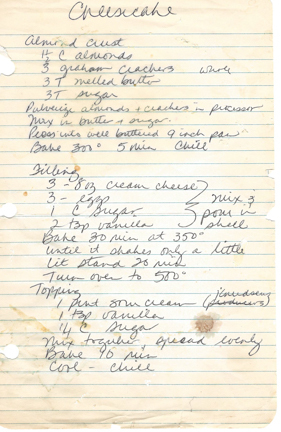 Cheesecake
Almond Crust
1/2 C almonds
3 graham crackers whole
3 T melted butter
3 T sugar
Pulverize almonds & crackers in processor
Mix in butter & sugar.
Press into well buttered 9 inch pan
Bake 300° 5 min Chill
Filling
3 - 8oz cream cheese
3 - eggs
1 C Sugar
2 tsp vanilla
mix &
pour in
shell
Bake 30 min at 350°
until it shakes only a little
Let stand 20 min
Turn oven to 500°
Topping
1 pint sour cream
1 tsp vanilla
1/4 C Sugar
Mix together, spread evenly
Bake 10 min
Cool - chill